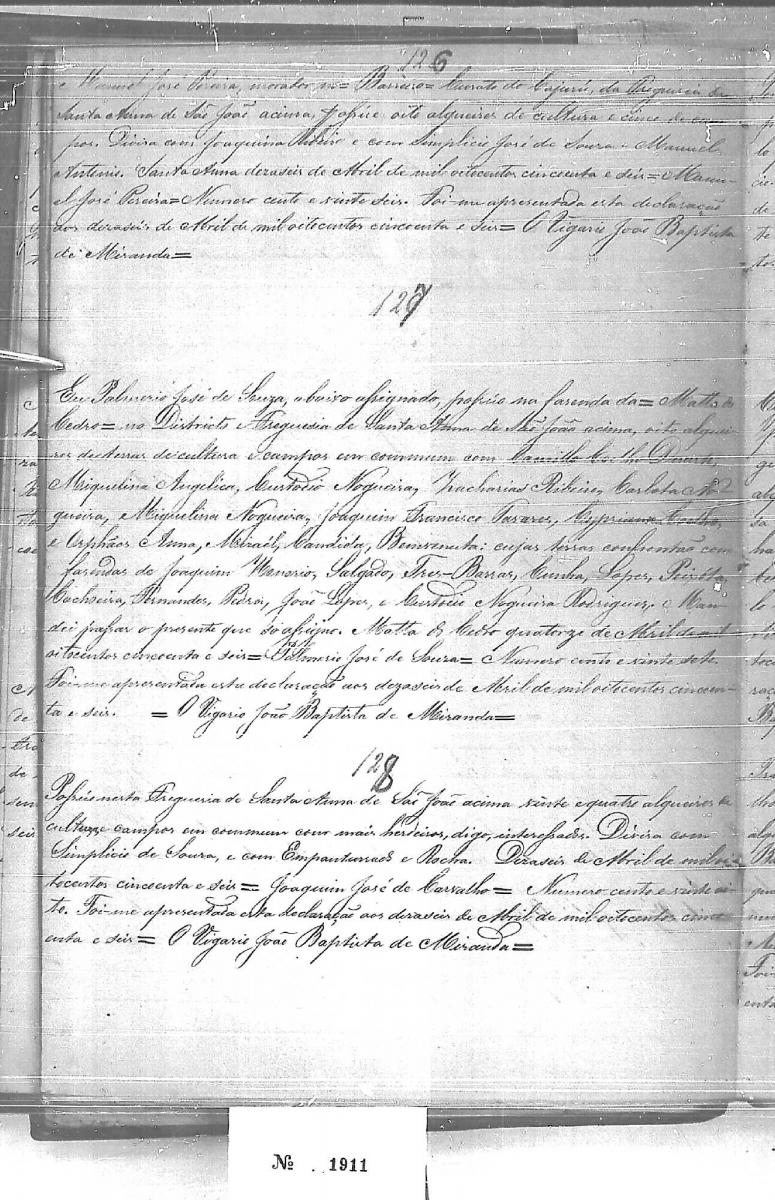 126
Manuel José Pereira, morador no = Barreiro = Curato do Cajurú, da Freguesia de
Santa Anna de São João acima, possúe oito alqueires de cultura e cinco de cam-
pos. Divisa com Joaquina Ribeiro e com Simplicio José de Souza Manuel
Antonio. Santa Anna dezaseis de Abril de mil oitocentos cincoenta e seis = Manu-
el José Pereira = Numero cento e vinte seis. Foi-me apresentada esta declaração
aos dezaseis de Abril de mil oitocentos cincoenta e seis = O Vigario João Baptista
de Miranda =
127
Eu Palmerio José de Souza, abaixo assignado, possúo na fazenda da = Matta do
Cedro = no Districto e Freguesia de Santa Anna de São João acima, oito alquei-
res de terras de cultura e campos em commum com Camillo Coelho Duarte,
Miquelina Angelica, Custodio Nogueira, Zacharias Ribeiro, Carlota No-
gueira, Miquelina Nogueira, Joaquim Francisco Tavares, Cypriano Coelho,
e Orphãos Anna, Mizaél, Candida, Benvenuta: cujas terras confrontão com
fazendas de Joaquim Venerio, Salgado, Tres-Barras, Cunha, Lopes, Peixoto,
Cachoeira, Fernandes, Pedra, João Lopes, e Custodio Nogueira Rodrigues. e Man-
dei passar o presente que só assigno. Matta do Cedro quatorze de Abril de mil
oitocentos cincoenta e seis = Palmerio José de Souza = Numero cento e vinte sete.
Foi-me apresentada esta declaração aos dezaseis de Abril de mil oitocentos cincoen-
ta e seis. = O Vigario João Baptista de Miranda =
128
Possúo nesta Freguesia de Santa Anna de São João acima vinte e quatro alqueires de
cultura e campos em commum com mais herdeiros, digo, interessados. Divisa com
Simplicio de Souza, e com Empanturrado e Rocha. Dezaseis de Abril de mil oi-
tocentos cincoenta e seis = Joaquim José de Carvalho = Numero cento e vinte oi-
to. Foi-me apresentada esta declaração aos dezaseis de Abril de mil oitocentos cinco-
enta e seis = O Vigario João Baptista de Miranda =
Nº 1911